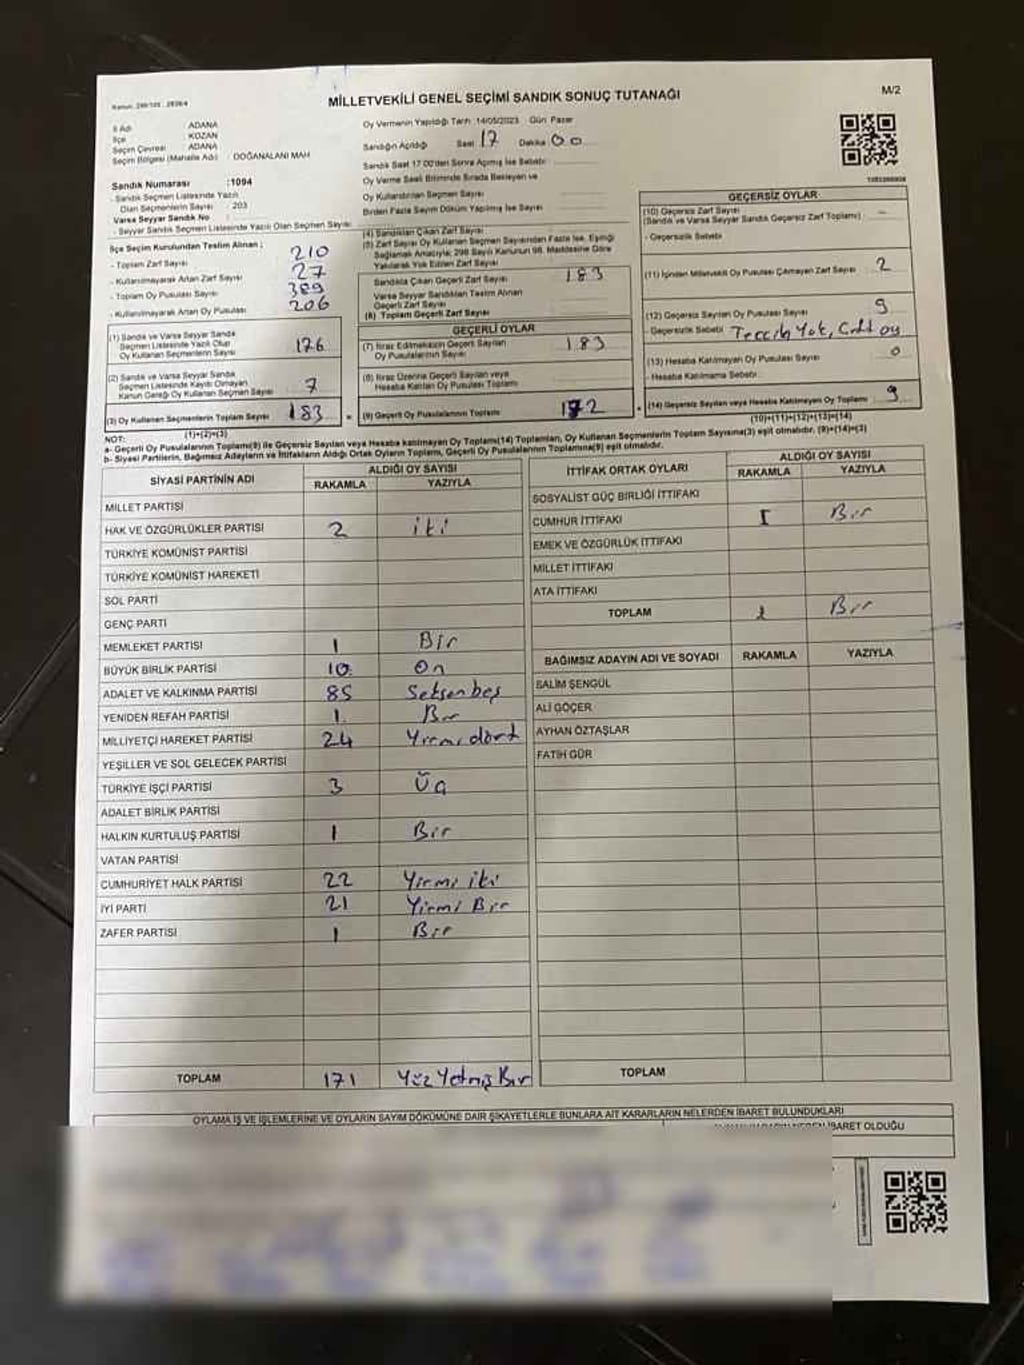 MİLLETVEKİLİ GENEL SEÇİMİ SANDIK SONUÇ TUTANAĞI
M/2
İl Adı : ADANA
İlçe : KOZAN
Seçim Çevresi : ADANA
Seçim Bölgesi (Mahalle Adı) : DOĞANALANI MAH
Sandık Numarası :1094
Sandık Seçmen Listesinde Yazılı
Olan Seçmenlerin Sayısı : 203
Varsa Seyyar Sandık No :
- Seyyar Sandık Listesinde Yazılı Olan Seçmen Sayısı :
Oy Vermenin Yapıldığı Tarih :14/05/2023 Gün Pazar
Sandığın Açıldığı Saat 17 Dakika 00
Sandık Saat 17.00'den Sonra Açılmış İse Sebebi :
Oy Verme Saati Bitiminde Sırada Bekleyen ve
Oy Kullandırılan Seçmen Sayısı
Birden Fazla Sayım Döküm Yapılmış İse Sayısı
İlçe Seçim Kurulundan Teslim Alınan ;
- Toplam Zarf Sayısı 210
- Kullanılmayarak Artan Zarf Sayısı 27
- Toplam Oy Pusulası Sayısı 389
- Kullanılmayarak Artan Oy Pusulası 206
(1) Sandık ve Varsa Seyyar Sandık
Seçmen Listesinde Yazılı Olup
Oy Kullanan Seçmenlerin Sayısı 176
(2) Sandık ve Varsa Seyyar Sandık
Seçmen Listesinde Kaydı Olmayan
Kanun Gereği Oy Kullanan Seçmen Sayısı 7
(3) Oy Kullanan Seçmenlerin Toplam Sayısı 183
(1)+(2)=(3)
(4) Sandıktan Çıkan Zarf Sayısı
(5) Zarf Sayısı Oy Kullanan Seçmen Sayısından Fazla İse, Eşitliği
Sağlamak Amacıyla; 298 Sayılı Kanunun 98. Maddesine Göre
Yakılarak Yok Edilen Zarf Sayısı
Sandıkta Çıkan Geçerli Zarf Sayısı 183
Varsa Seyyar Sandıktan Teslim Alınan
Geçerli Zarf Sayısı
(6) Toplam Geçerli Zarf Sayısı
GEÇERLİ OYLAR
(7) İtiraz Edilmeksizin Geçerli Sayılan
Oy Pusulalarının Sayısı 183
(8) İtiraz Üzerine Geçerli Sayılan veya
Hesaba Katılan Oy Pusulası Toplamı
(9) Geçerli Oy Pusulalarının Toplamı 172
GEÇERSİZ OYLAR
(10) Geçersiz Zarf Sayısı
(Sandık ve Varsa Seyyar Sandık Geçersiz Zarf Toplamı) -
- Geçersizlik Sebebi
(11) İçinden Milletvekili Oy Pusulası Çıkmayan Zarf Sayısı 2
(12) Geçersiz Sayılan Oy Pusulası Sayısı 9
- Geçersizlik Sebebi Tercih Yok, Çift oy
(13) Hesaba Katılmayan Oy Pusulası Sayısı 0
- Hesaba Katılmama Sebebi :
(14) Geçersiz Sayılan veya Hesaba Katılmayan Oy Toplamı 9
(10)+(11)+(12)+(13)=(14)
NOT:
a- Geçerli Oy Pusulalarının Toplamı(9) ile Geçersiz Sayılan veya Hesaba katılmayan Oy Toplamı(14) Toplamları, Oy Kullanan Seçmenlerin Toplam Sayısına(3) eşit olmalıdır. (9)+(14)=(3)
b- Siyasi Partilerin, Bağımsız Adayların ve İttifakların Aldığı Ortak Oyların Toplamı, Geçerli Oy Pusulalarının Toplamına(9) eşit olmalıdır.
SİYASİ PARTİNİN ADI ALDIĞI OY SAYISI
RAKAMLA YAZIYLA
MİLLET PARTİSİ
HAK VE ÖZGÜRLÜKLER PARTİSİ 2 iki
TÜRKİYE KOMÜNİST PARTİSİ
TÜRKİYE KOMÜNİST HAREKETİ
SOL PARTİ
GENÇ PARTİ
MEMLEKET PARTİSİ 1 Bir
BÜYÜK BİRLİK PARTİSİ 10 On
ADALET VE KALKINMA PARTİSİ 85 Seksenbeş
YENİDEN REFAH PARTİSİ 1 Bir
MİLLİYETÇİ HAREKET PARTİSİ 24 Yirmidört
YEŞİLLER VE SOL GELECEK PARTİSİ
TÜRKİYE İŞÇİ PARTİSİ 3 Üç
ADALET BİRLİK PARTİSİ
HALKIN KURTULUŞ PARTİSİ 1 Bir
VATAN PARTİSİ
CUMHURİYET HALK PARTİSİ 22 Yirmi iki
İYİ PARTİ 21 Yirmi Bir
ZAFER PARTİSİ 1 Bir
TOPLAM 171 Yüz Yetmiş Bir
İTTİFAK ORTAK OYLARI ALDIĞI OY SAYISI
RAKAMLA YAZIYLA
SOSYALİST GÜÇ BİRLİĞİ İTTİFAKI
CUMHUR İTTİFAKI 1 Bir
EMEK VE ÖZGÜRLÜK İTTİFAKI
MİLLET İTTİFAKI
ATA İTTİFAKI
TOPLAM 1 Bir
BAĞIMSIZ ADAYIN ADI VE SOYADI RAKAMLA YAZIYLA
SALİM ŞENGÜL
ALİ GÖÇER
AYHAN ÖZTAŞLAR
FATİH GÜR
TOPLAM
OYLAMA İŞ VE İŞLEMLERİNE VE OYLARIN SAYIM DÖKÜMÜNE DAİR ŞİKAYETLERLE BUNLARA AİT KARARLARIN NELERDEN İBARET BULUNDUKLARI
İBARET OLDUĞU